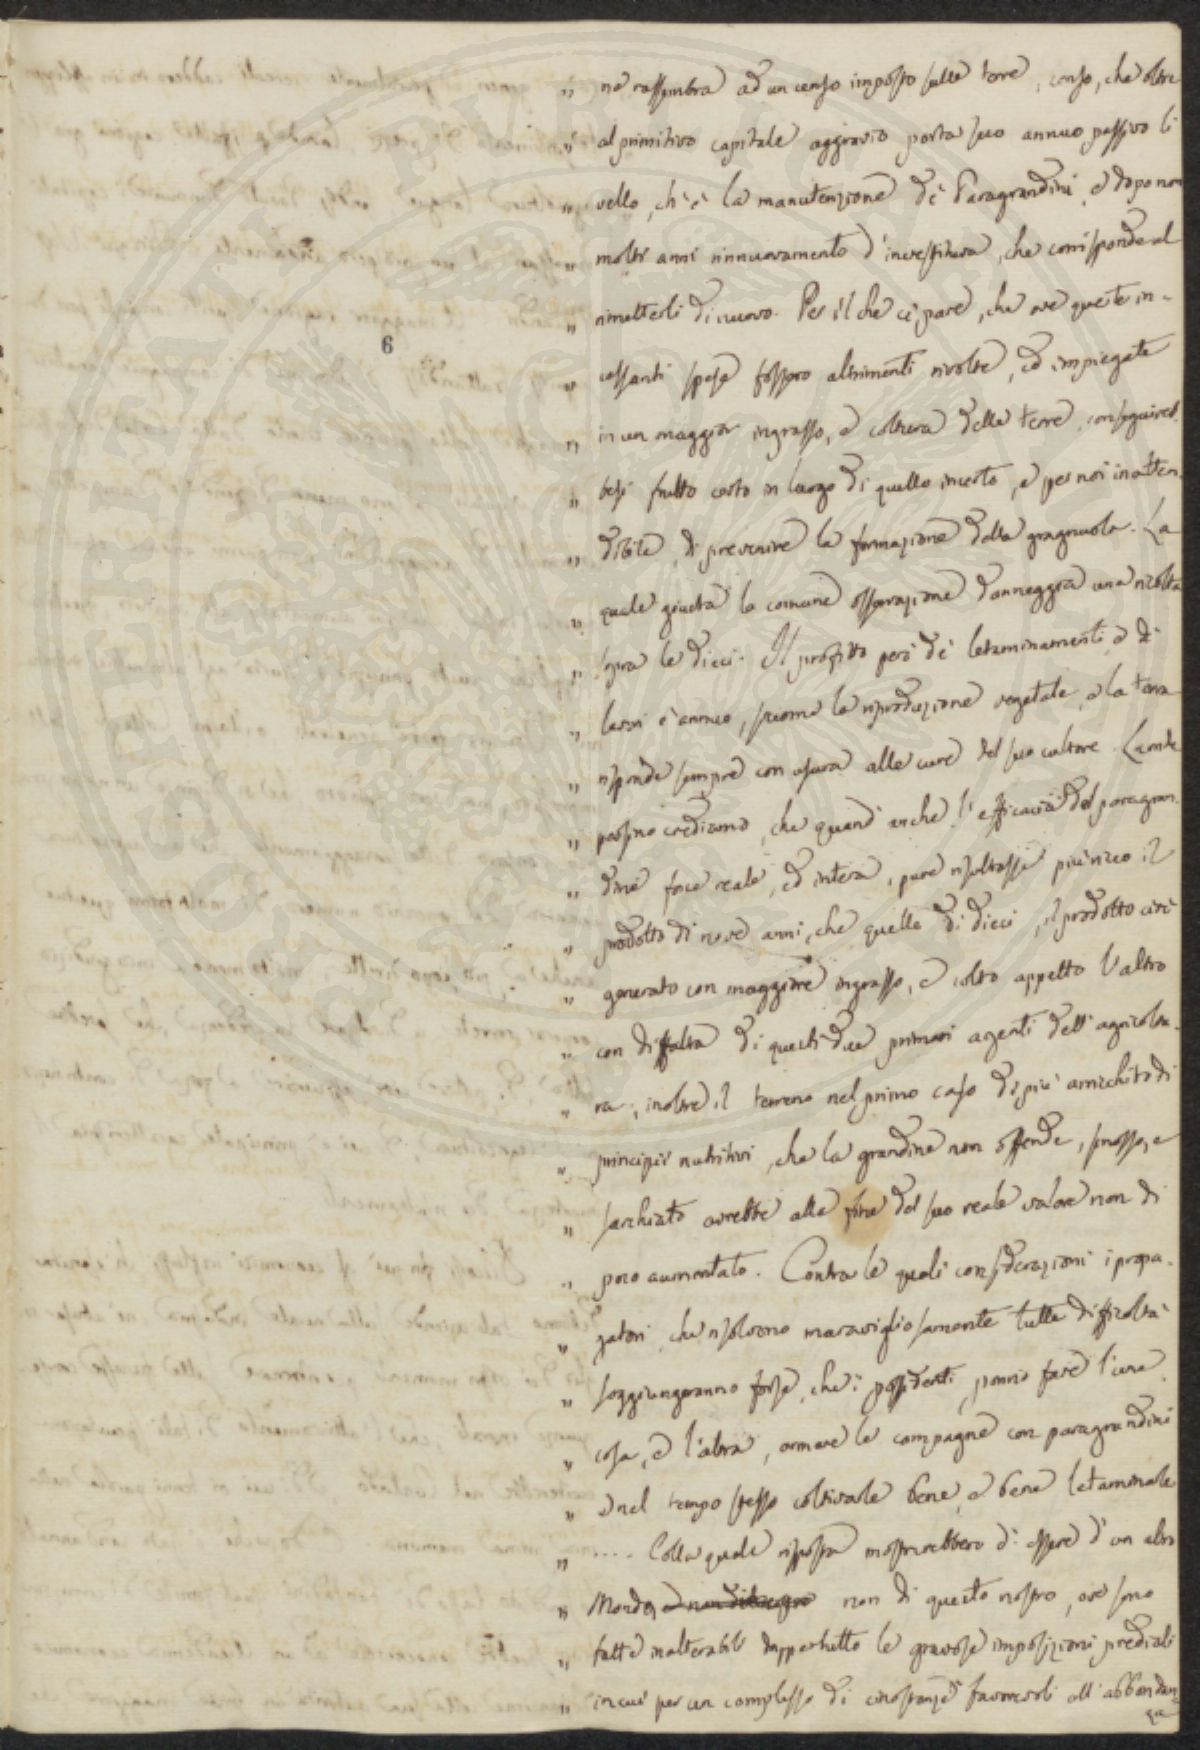 6
" ne rassembra ad un censo imposto sulle terre, censo, che oltre
" al primitivo capitale aggravio porta suo annuo passivo li
" vello, ch'è la manutenzione de' Paragrandini, e dopo non
" molti anni rinnuovamento d'investitura, che corrisponde al
" rimetterli di nuovo. Per il che ci pare, che ove queste in-
" cessanti spese fossero altrimenti rivolte, ed impiegate
" in un maggior ingrasso, e coltura delle terre, conseguireb
" besi frutto certo in luogo di quello incerto, e per noi inatten
" dibile, di prevenire la formazione della gragnuola. La
" quale giusta la comune osservazione danneggia una ricolta
" sopra le dieci. Il profitto però de' letaminamenti, e di
" lavori è annuo, siccome la riproduzione vegetale, e la terra
" risponde sempre con usura alle cure del suo cultore. Laonde
" persino crediamo, che quand' anche l'efficacia del paragran
" dine fosse reale, ed intera, pure risultasse più ricco il
" prodotto di nove anni, che quello di dieci, il prodotto cioè
" generato con maggiore ingrasso, e colto appetto l'altro
" con diffalta di questi due primari agenti dell'agricoltu-
" ra; inoltre il terreno nel primo caso di più arricchito di
" principii nutritivi, che la grandine non offende, smosso, e
" sarchiato avrebbe alla fine del suo reale valore non di
" poco aumentato. Contra le quali considerazioni i propa-
" gatori, che risolvono maravigliosamente tutte difficoltà
" soggiungeranno forse, che i possidenti ponno fare l'una
" cosa, e l'altra, armare le campagne con paragrandini
" e nel tempo stesso coltivarle bene, e bene letaminarle
" .... Colla quale risposta mostrerebbero di essere d'un altro
" Mondo, non di questo nostro, ove sono
" tutte inalterabili dappertutto le gravose imposizioni prediali
" in cui per un complesso di circostanze favorevoli all'abbondan
za